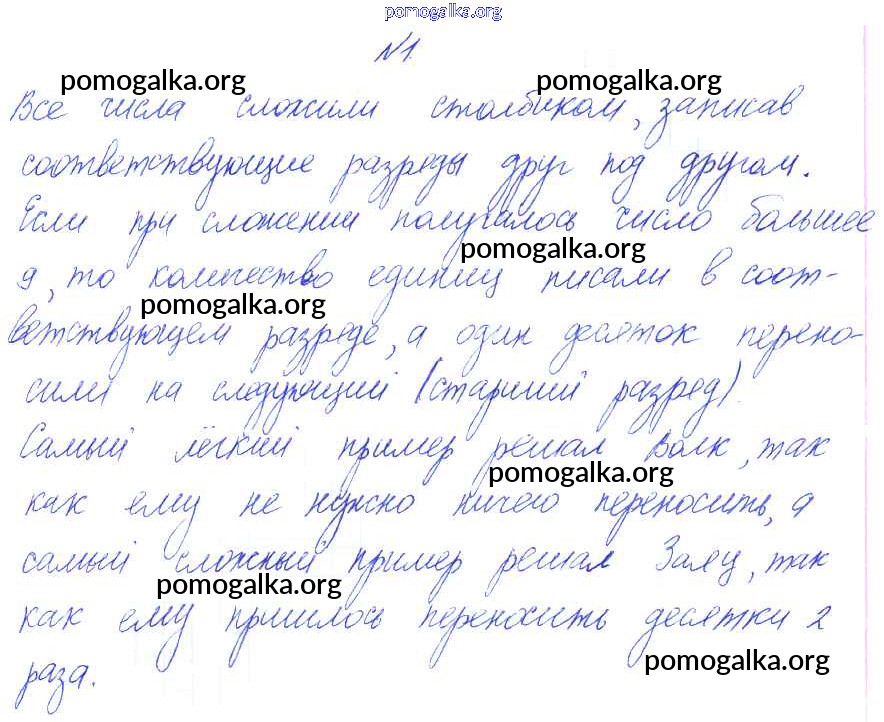 pomogalka.org
№1.
pomogalka.org pomogalka.org
Все числа сложили столбиком, записав
соответствующие разряды друг под другом.
Если при сложении получалось число большее
pomogalka.org
9, то количество единиц писали в соот-
pomogalka.org
ветствующем разряде, а один десяток перено-
сили на следующий (старший разряд).
Самый лёгкий пример решал Волк, так
pomogalka.org
как ему не нужно ничего переносить, а
самый сложный пример решал Заяц, так
pomogalka.org
как ему пришлось переносить десятки 2
pomogalka.org
раза.